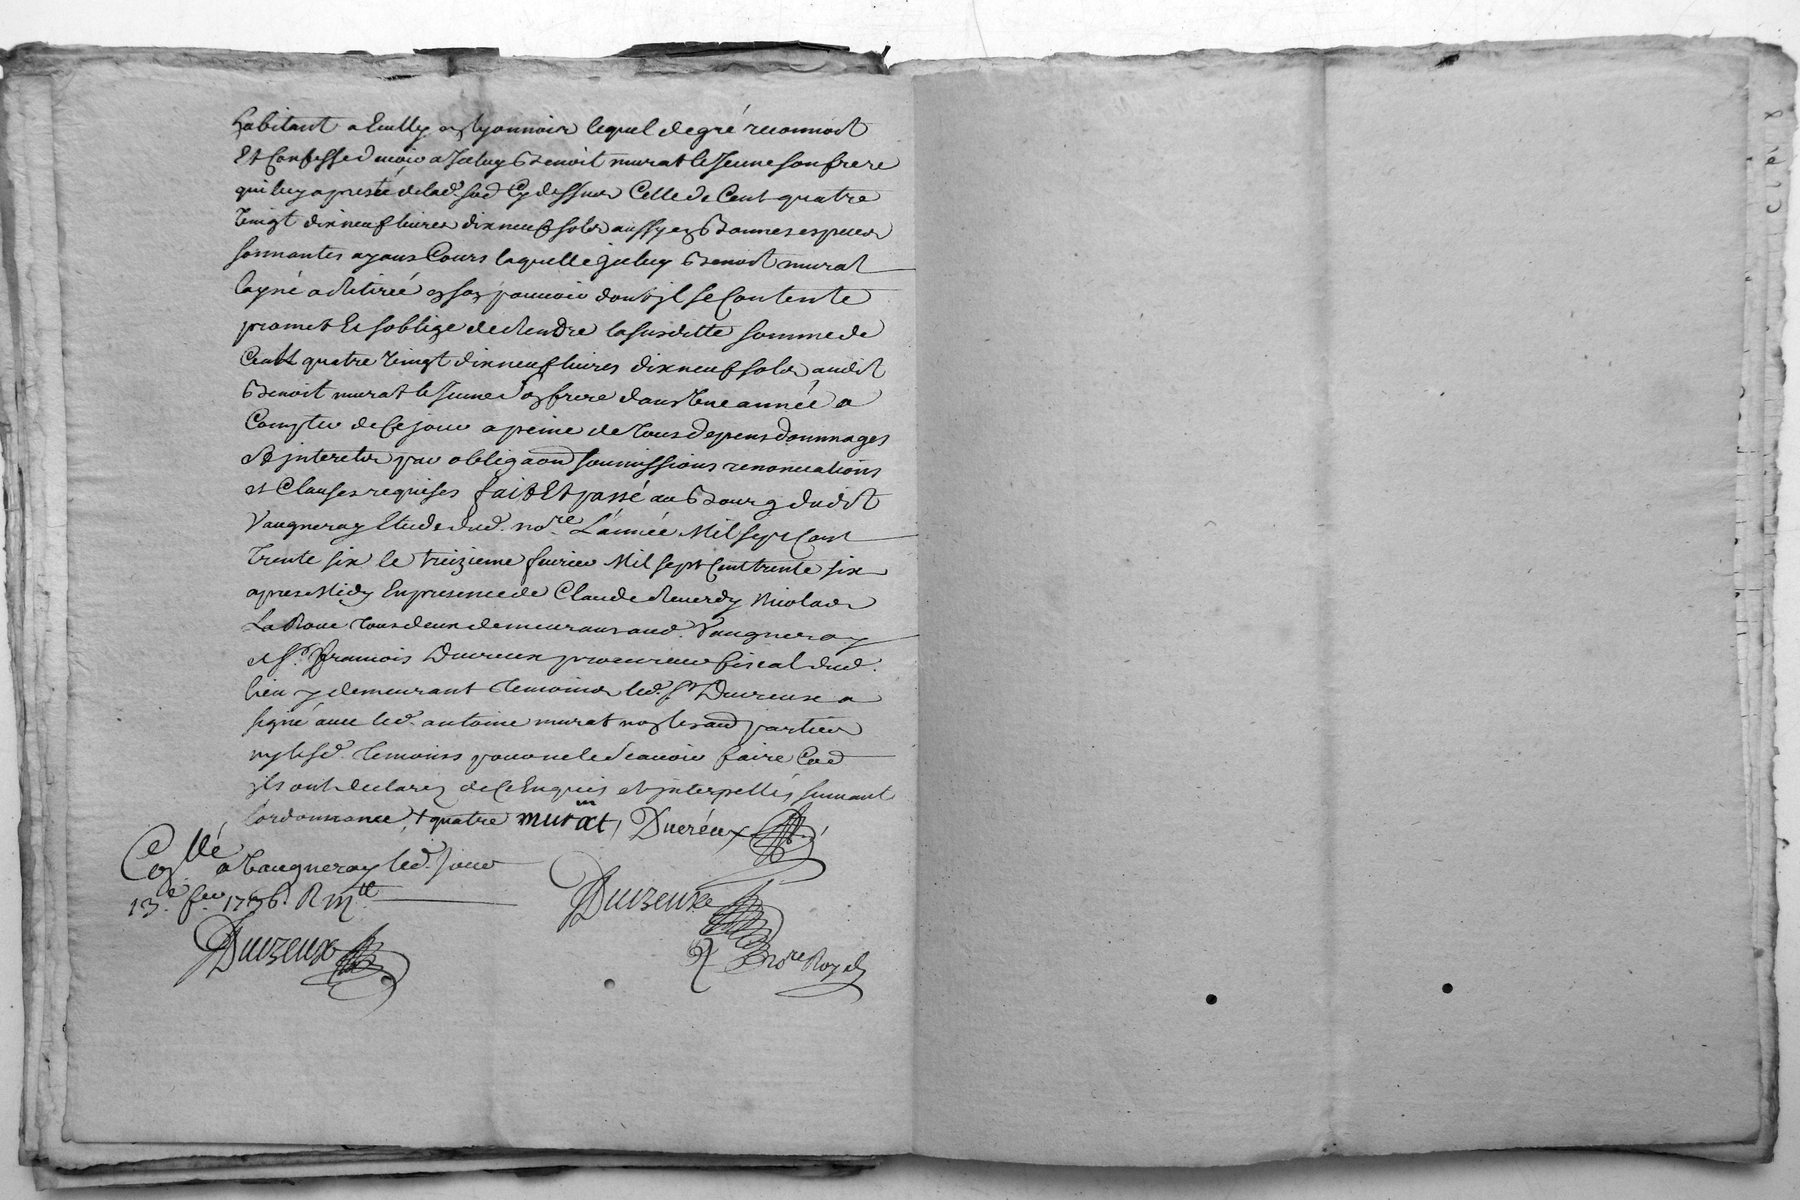 habitant a Ecully en lyonnois lequel de gré reconnoit
Et Confesse devoir a Iceluy Benoit murat le Jeune son frere
qui luy a presté de lad. so.e Cy dessus Celle de Cent quatre
Vingt dix neuf livres dix neuf sols aussy en Bonnes especes
sonnantes ayans Cours laquelle Iceluy Benoit murat
layné a Retirée en son pouvoir dont jl se Contente
promet Et soblige de Rendre la susditte somme de
Cent quatre Vingt dix neuf livres dix neuf sols audit
Benoit murat le Jeune son frere dans Une année a
Compter de Ce jour a peine de tous depens dommages
Et jnterets par obligaon soumissions renonciations
et Clauses requises fait Et passé au Bourg dudit
Vaugneray Etude dud. no.re L'année Mil sept Cent
trente six le treizieme fevrier Mil sept Cent trente six
apres Midy En presence de Claude Reverdy Nicolas
La Roue tous deux demeurans aud. Vaugneray
et Sr. francois Ducreux procureur fiscal dud.
lieu y demeurant temoins led. Sr. Ducreux a
signé avec led. antoine murat non les au.. parties
ny lesd. temoins pour ne le Scavoir faire Co.e
jls ont declarez de Ce Enquis et jnterpellés suivant
l'ordonnance + quatre murat Ducreux
Con.llé a Vaugneray led. jour
13.e fev. 1736. R
Ducreux
Ducreux
no.re Royal